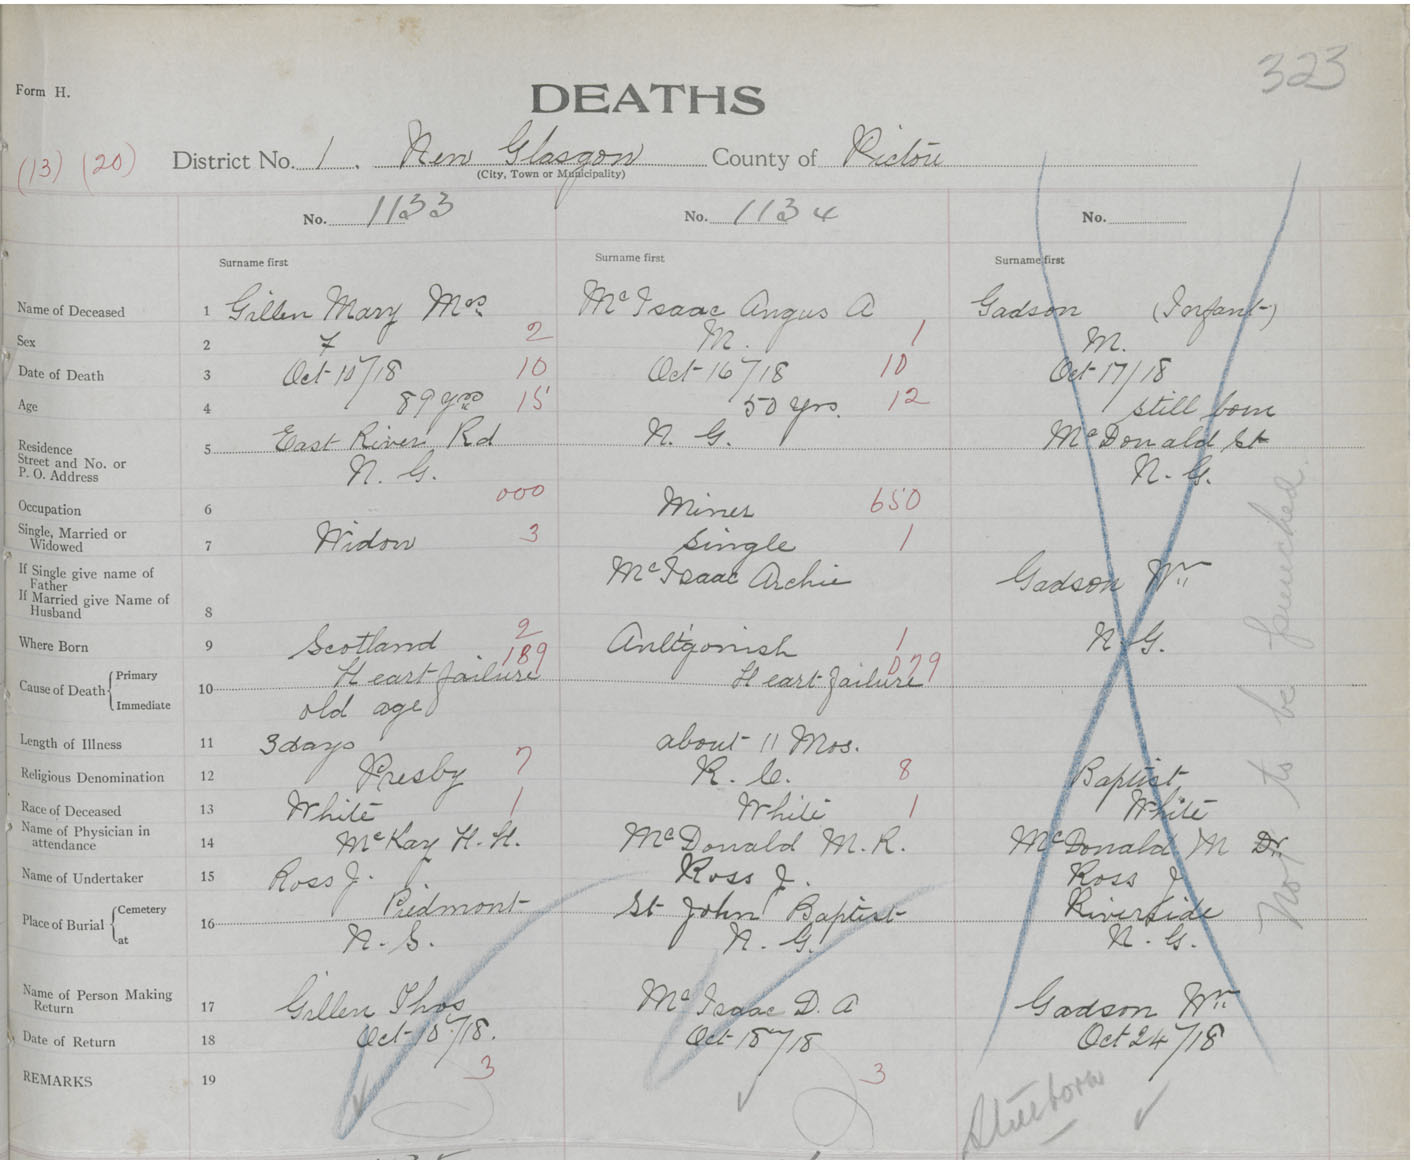 323
Form H.
DEATHS
(13) (20) District No. 1. New Glasgow County of Pictou
(City, Town or Municipality)
No. 1133 No. 1134 No.
Surname first Surname first Surname first
Name of Deceased 1 Gillen Mary Mrs McIsaac Angus A Gadson (Infant)
Sex 2 F 2 M. 1 M.
Date of Death 3 Oct 15/18 10 Oct 16/18 10 Oct 17/18
Age 4 89 yrs 15 50 yrs. 12 still born
Residence 5 East River Rd N. G. McDonald St
Street and No. or
P. O. Address N. G. N. G.
Occupation 6 000 Miner 650
Single, Married or
Widowed 7 Widow 3 Single 1
If Single give name of
Father McIsaac Archie Gadson Wm
If Married give Name of
Husband 8
Where Born 9 Scotland 2 Antigonish 1 N. G.
Cause of Death { Primary 10 Heart failure 189 Heart failure 079
Immediate old age
Length of Illness 11 3 days about 11 Mos.
Religious Denomination 12 Presby 7 R. C. 8 Baptist
Race of Deceased 13 White 1 White 1 White
Name of Physician in
attendance 14 McKay H. H. McDonald M. R. McDonald M Dr
Name of Undertaker 15 Ross J. Ross J. Ross J
Place of Burial { Cemetery 16 Piedmont St John Baptist Riverside
at N. S. N. G. N. G.
Name of Person Making
Return 17 Gillen Thos McIsaac D. A Gadson Wm
Date of Return 18 Oct 18/18. Oct 18/18 Oct 24/18
REMARKS 19 3 3
Stillborn
Not to be punched.